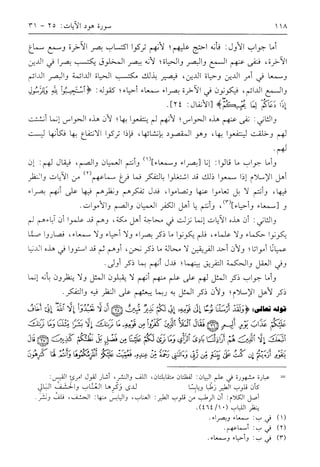 ١١٨ سورة هود الآيات: ٢٥ - ٣١
أما جواب الأول: فأنه احتج عليهم؛ لأنهم تركوا اكتساب بصر الآخرة وسمع وسماع
الآخرة، فنفى عنهم السمع والبصر والحياة؛ لأنه ببصر المخلوق يكتسب بصرا في الدين
وسمعا في أمر الدين وحياة الدين، فيصير بذلك مكتسب الحياة الدائمة والبصر الدائم
والسمع الدائم، فيكونون في الآخرة بصراء سمعاء أحياء؛ كقوله: ﴿أَسْتَجِيبُوا لِلَّهِ وَلِلرَّسُولِ
إِذَا دَعَاكُمْ لِمَا يُحْيِيكُمْ﴾ [الأنفال: ٢٤].
والثاني: نفى عنهم هذه الحواس؛ لأنهم لم ينتفعوا بها؛ لأن هذه الحواس إنما أنشئت
لهم وخلقت لينتفعوا بها، وهو المقصود بإنشائها، فإذا تركوا الانتفاع بها فكأنها ليست
لهم.
وأما جواب ما قالوا: إنا [بصراء وسمعاء](١) وأنتم العميان والصم، فيقال لهم: إن
أهل الإسلام إذا سمعوا ذلك قد اشتغلوا بالتفكر فما قرع سماعهم(٢) من الآيات والنظر
فيها، وأنتم لا بل تعاموا عنها وتصاموا، فدل تفكرهم ونظرهم فيها على أنهم بصراء
و [سمعاء وأحياء](٣)، وأنتم يا أهل الكفر العميان والصم والأموات.
والثاني: أن هذه الآيات إنما نزلت في محاجة أهل مكة، وهم قد علموا أن آباءهم لم
يكونوا حكماء ولا علماء، فلم يكونوا ما ذكر بصراء ولا أحياء ولا سمعاء، فصاروا صمًا
عميانًا أمواتا؛ ولأن أحد الفريقين لا محالة ما ذكر نحن، أوهم ثم قد استووا في هذه الدنيا
وفي العقل والحكمة التفريق بينهما؛ فدل أنهم بما ذكر أولى.
وأما جواب ذكر المثل لهم على علم منهم أنهم لا يقبلون المثل ولا ينظرون بأنه إنما
ذكر لأهل الإسلام؛ ولأن ذكر المثل به ربما يبعثهم على النظر فيه والتفكر.
قوله تعالى: ﴿وَلَقَدْ أَرْسَلْنَا نُوحًا إِلَى قَوْمِهِ إِنِّي لَكُمْ نَذِيرٌ مُبِينٌ أَنْ لَا تَعْبُدُوا إِلَّا اللَّهَ إِنِّي أَخَافُ
عَلَيْكُمْ عَذَابَ يَوْمٍ أَلِيمٍ فَقَالَ الْمَلَأُ الَّذِينَ كَفَرُوا مِنْ قَوْمِهِ مَا نَرَاكَ إِلَّا بَشَرًا مِثْلَنَا وَمَا نَرَاكَ
اتَّبَعَكَ إِلَّا الَّذِينَ هُمْ أَرَاذِلُنَا بَادِيَ الرَّأْيِ وَمَا نَرَى لَكُمْ عَلَيْنَا مِنْ فَضْلٍ بَلْ نَظُنُّكُمْ كَاذِبِينَ قَالَ
يَا قَوْمِ أَرَأَيْتُمْ إِنْ كُنْتُ عَلَى بَيِّنَةٍ مِنْ رَبِّي وَآتَانِي رَحْمَةً مِنْ عِنْدِهِ فَعُمِّيَتْ عَلَيْكُمْ أَنُلْزِمُكُمُوهَا وَأَنْتُمْ لَهَا كَارِهُونَ
= عبارة مشهورة في علم البيان: لفظتان متقابلتان، اللف والنشر، أشار لقول امرئ القيس:
كأن قلوب الطير رطبا ويابسًا لدى وكرها العناب والحشف البالي
أصل الكلام: أن الرطب من قلوب الطير: العناب، واليابس منها: الحشف، فلف ونشر.
ينظر اللباب (١٠/ ٤٦٤)
(١) في ب: سمعاء وبصراء.
(٢) في ب: أسماعهم.
(٣) في ب: وأحياء وسمعاء.